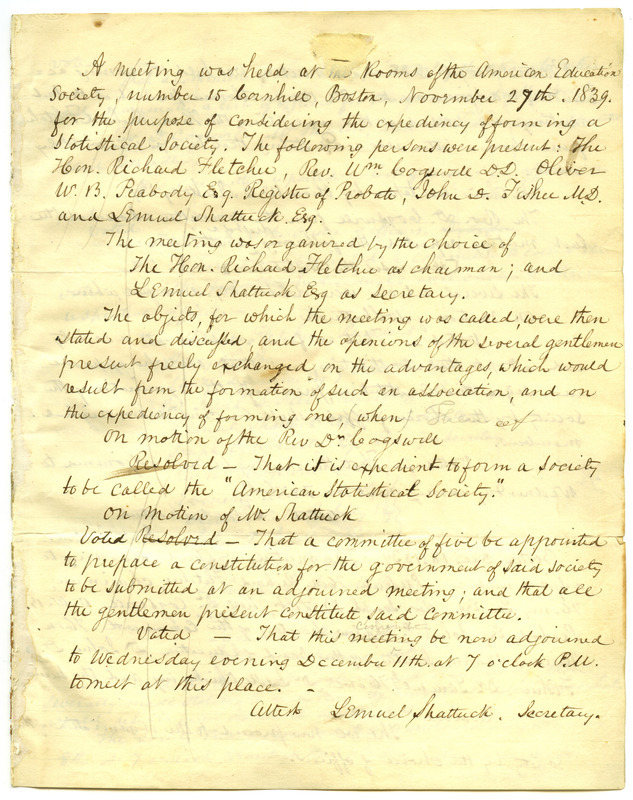 A meeting was held at the Rooms of the American Education
Society, number 15 Cornhill, Boston, November 27th. 1839.
for the purpose of considering the expediency of forming a
Statistical Society. The following persons were present: The
Hon. Richard Fletcher, Rev. Wm Cogswell DD. Oliver
W. B. Peabody Esq. Register of Probate, John D. Fisher M.D.
and Lemuel Shattuck Esq.
The meeting was organized by the choice of
The Hon. Richard Fletcher as chairman; and
Lemuel Shattuck Esq as secretary.
The objects, for which the meeting was called, were then
stated and discussed, and the openions of the several gentlemen
present freely exchanged on the advantages, which would
result from the formation of such an association, and on
the expediency of forming one, when
On motion of the Rev Dr. Cogswell
Resolved – That it is expedient to form a society
to be called the "American Statistical Society."
On motion of Mr. Shattuck
Voted Resolved – That a committee of five be appointed
to prepare a constitution for the government of said society
to be submitted at an adjoined meeting; and that all
the gentlemen present constitute said committee.
Voted – That this meeting be now adjoined
to Wednesday evening December 11th. at 7 o'clock P.M.
to meet at this place. –
Attest Lemuel Shattuck. Secretary.